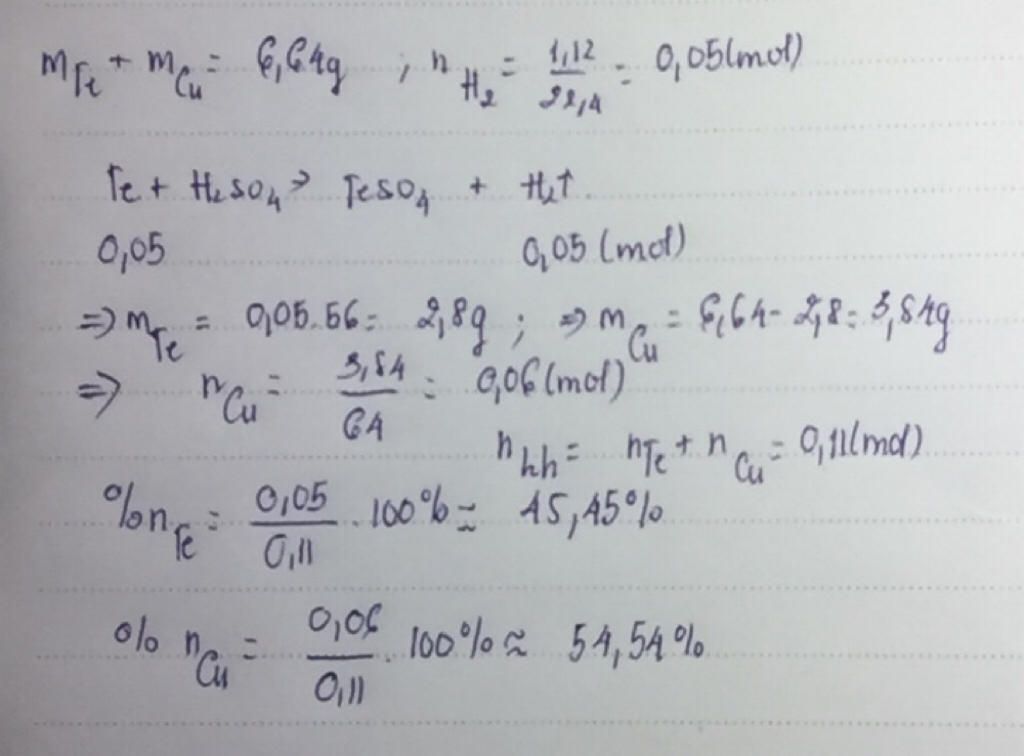 mFe + mCu = 6,64g ; nH₂ = 1,12/22,4 = 0,05(mol)
Fe + H₂SO₄ → FeSO₄ + H₂↑
0,05 0,05 (mol)
=> mFe = 0,05.56 = 2,8g ; => mCu = 6,64 - 2,8 = 3,84g
=> nCu = 3,84/64 = 0,06(mol)
nhh = nFe + nCu = 0,11(mol)
%nFe = 0,05/0,11 . 100% ≈ 45,45%
% nCu = 0,06/0,11 . 100% ≈ 54,54%